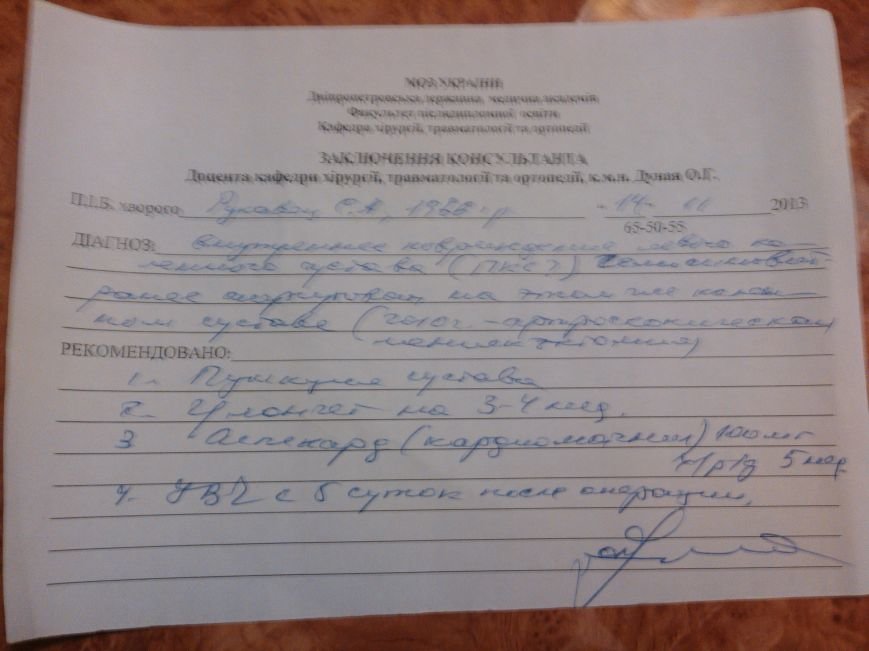 МОЗ УКРАЇНИ
Дніпропетровська державна медична академія
Факультет післядипломної освіти
Кафедра хірургії, травматології та ортопедії
ЗАКЛЮЧЕННЯ КОНСУЛЬТАНТА
Доцента кафедри хірургії, травматології та ортопедії, к.м.н. Дуная О.Г.
П.І.Б. хворого С.А, 1986 г.р "14" 11 2013
65-50-55
ДІАГНОЗ: внутреннее повреждение левого ко-
ленного сустава (ПКС?)
ранее на этом же колен-
ном суставе (2010г. - артроскопическая
менискэктомия)
РЕКОМЕНДОВАНО:
1. Пункция сустава
2. Лонгет на 3-4 нед.
3. Аспекард (кардиомагнил) 100 мг
1/р/д 5 нед
4. УВЧ с 5 суток после операции.